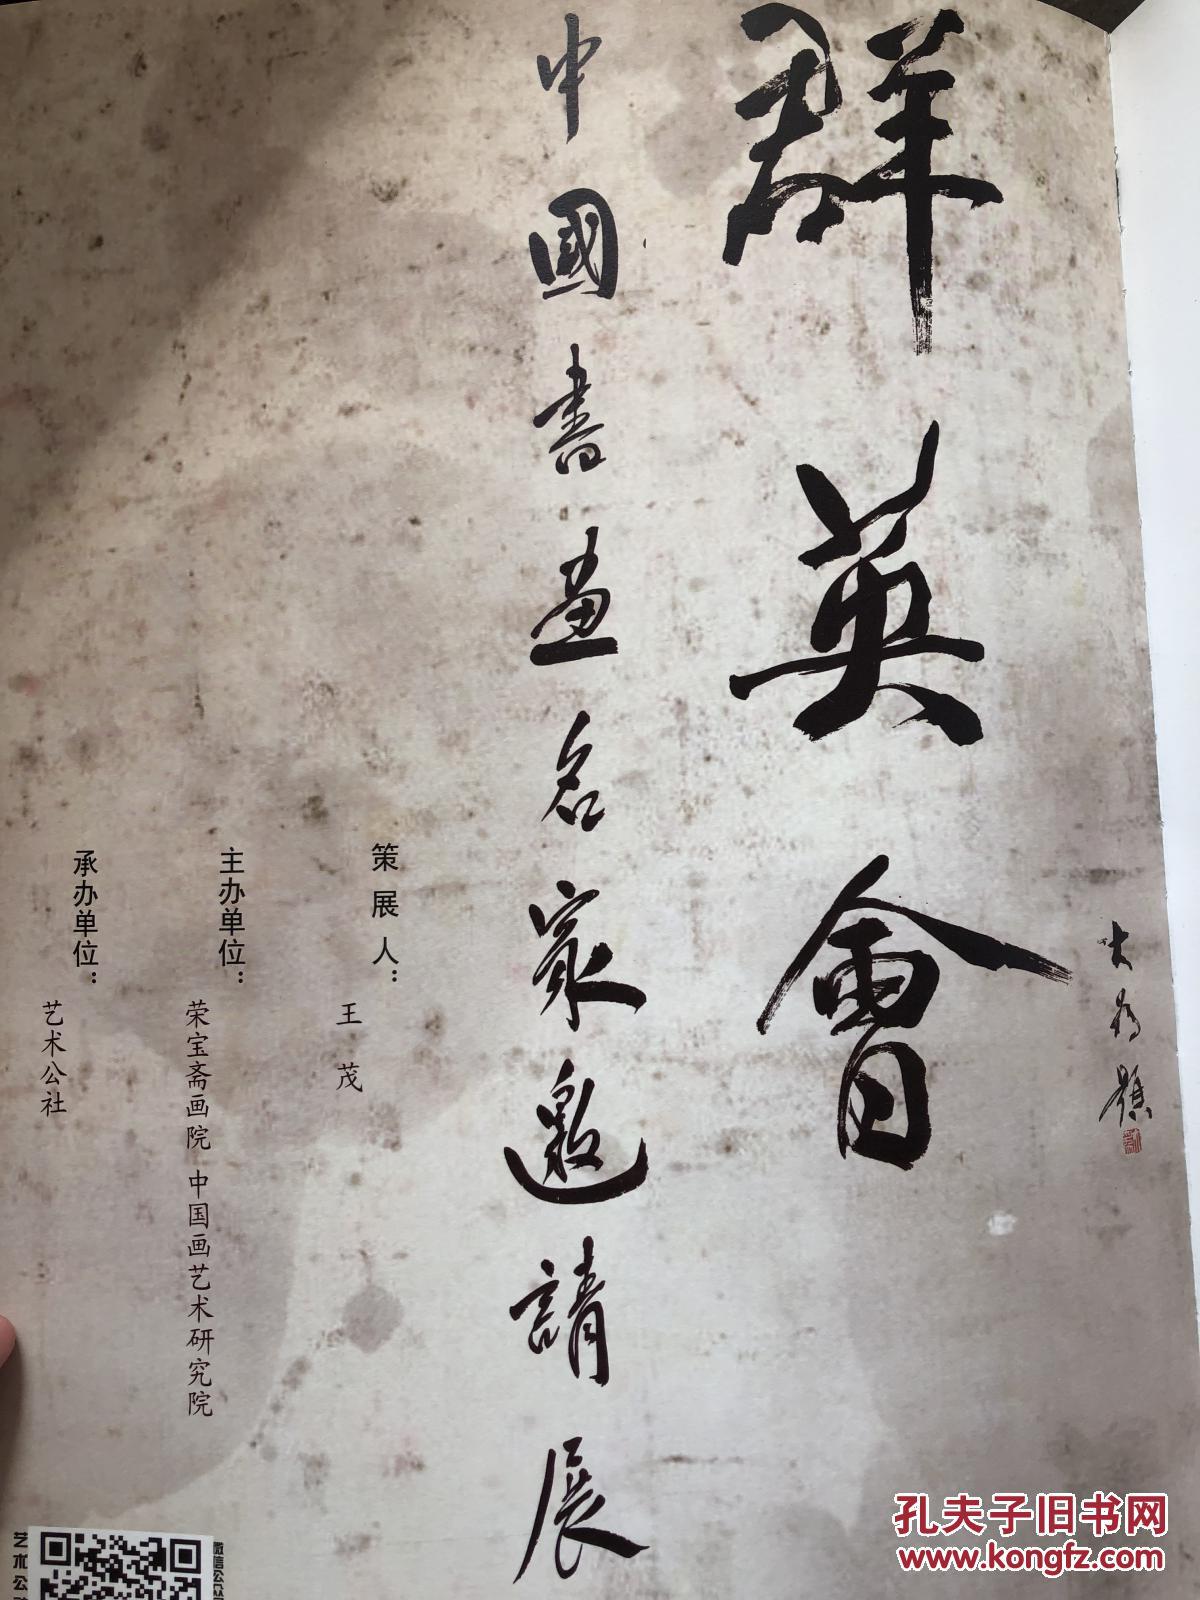 大为题
群英會
中國書画名家邀請展
策展人：
王茂
主办单位：
荣宝斋画院 中国画艺术研究院
承办单位：
艺术公社
艺术公
孔夫子旧书网
www.kongfz.com